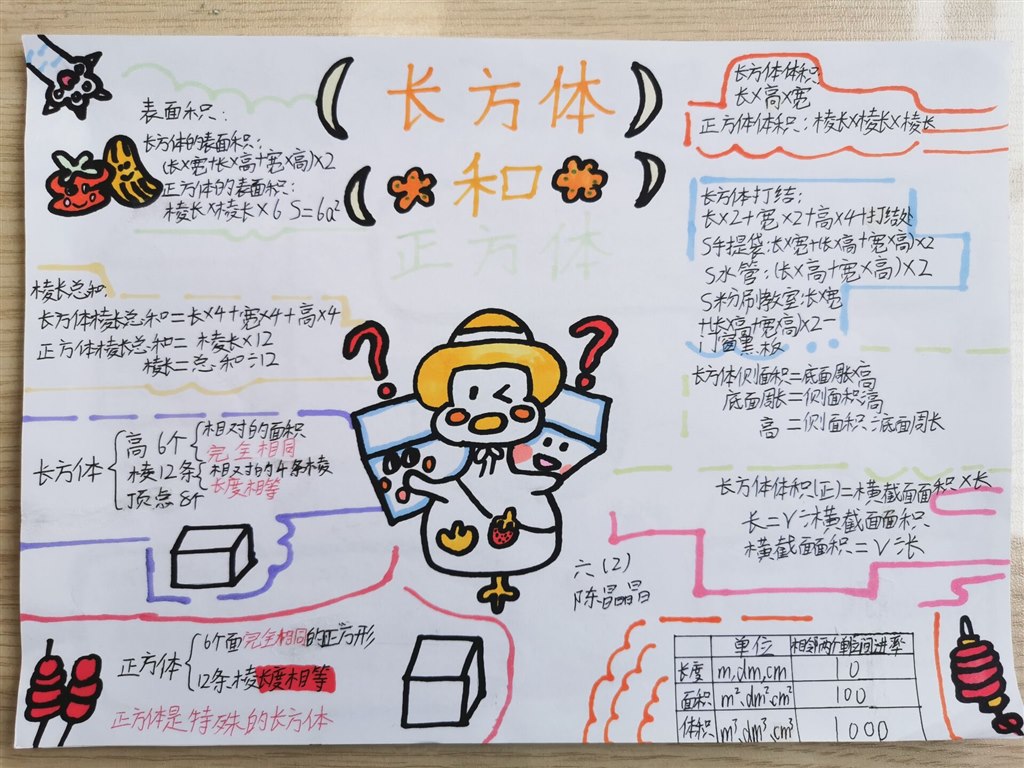 长方体
和
正方体
表面积：
长方体的表面积：
(长×宽+长×高+宽×高)×2
正方体的表面积：
棱长×棱长×6 S=6a²
棱长总和：
长方体棱长总和=长×4+宽×4+高×4
正方体棱长总和= 棱长×12
棱长=总和÷12
长方体
高 6个
相对的面积
完全相同
棱12条
相对的4条棱
长度相等
顶点8个
正方体
6个面完全相同的正方形
12条棱长度相等
正方体是特殊的长方体
长方体体积：
长×高×宽
正方体体积：棱长×棱长×棱长
长方体打结：
长×2+宽×2+高×4+打结处
S手提袋：长×宽+(长×高+宽×高)×2
S水管：(长×高+宽×高)×2
S粉刷教室：长×宽
+(长×高+宽×高)×2-
门窗黑板
长方体侧面积=底面周长×高
底面周长=侧面积÷高
高=侧面积÷底面周长
长方体体积(正)=横截面面积×长
长=V÷横截面面积
横截面面积=V÷长
六(2)
陈晶晶
单位 相邻两个单位间进率
长度 m、dm、cm 10
面积 m²、dm²、cm² 100
体积 m³、dm³、cm³ 1000